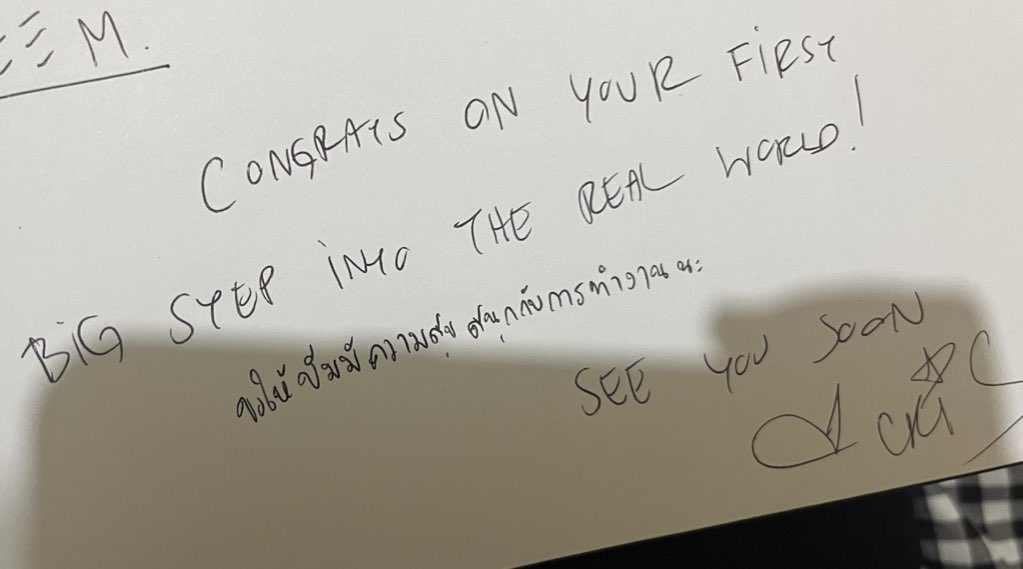 M.
CONGRATS ON YOUR FIRST
BIG STEP INTO THE REAL WORLD!
ขอให้ปีมมีความสุข สนุกกับการทำงานนะ
SEE YOU SOON